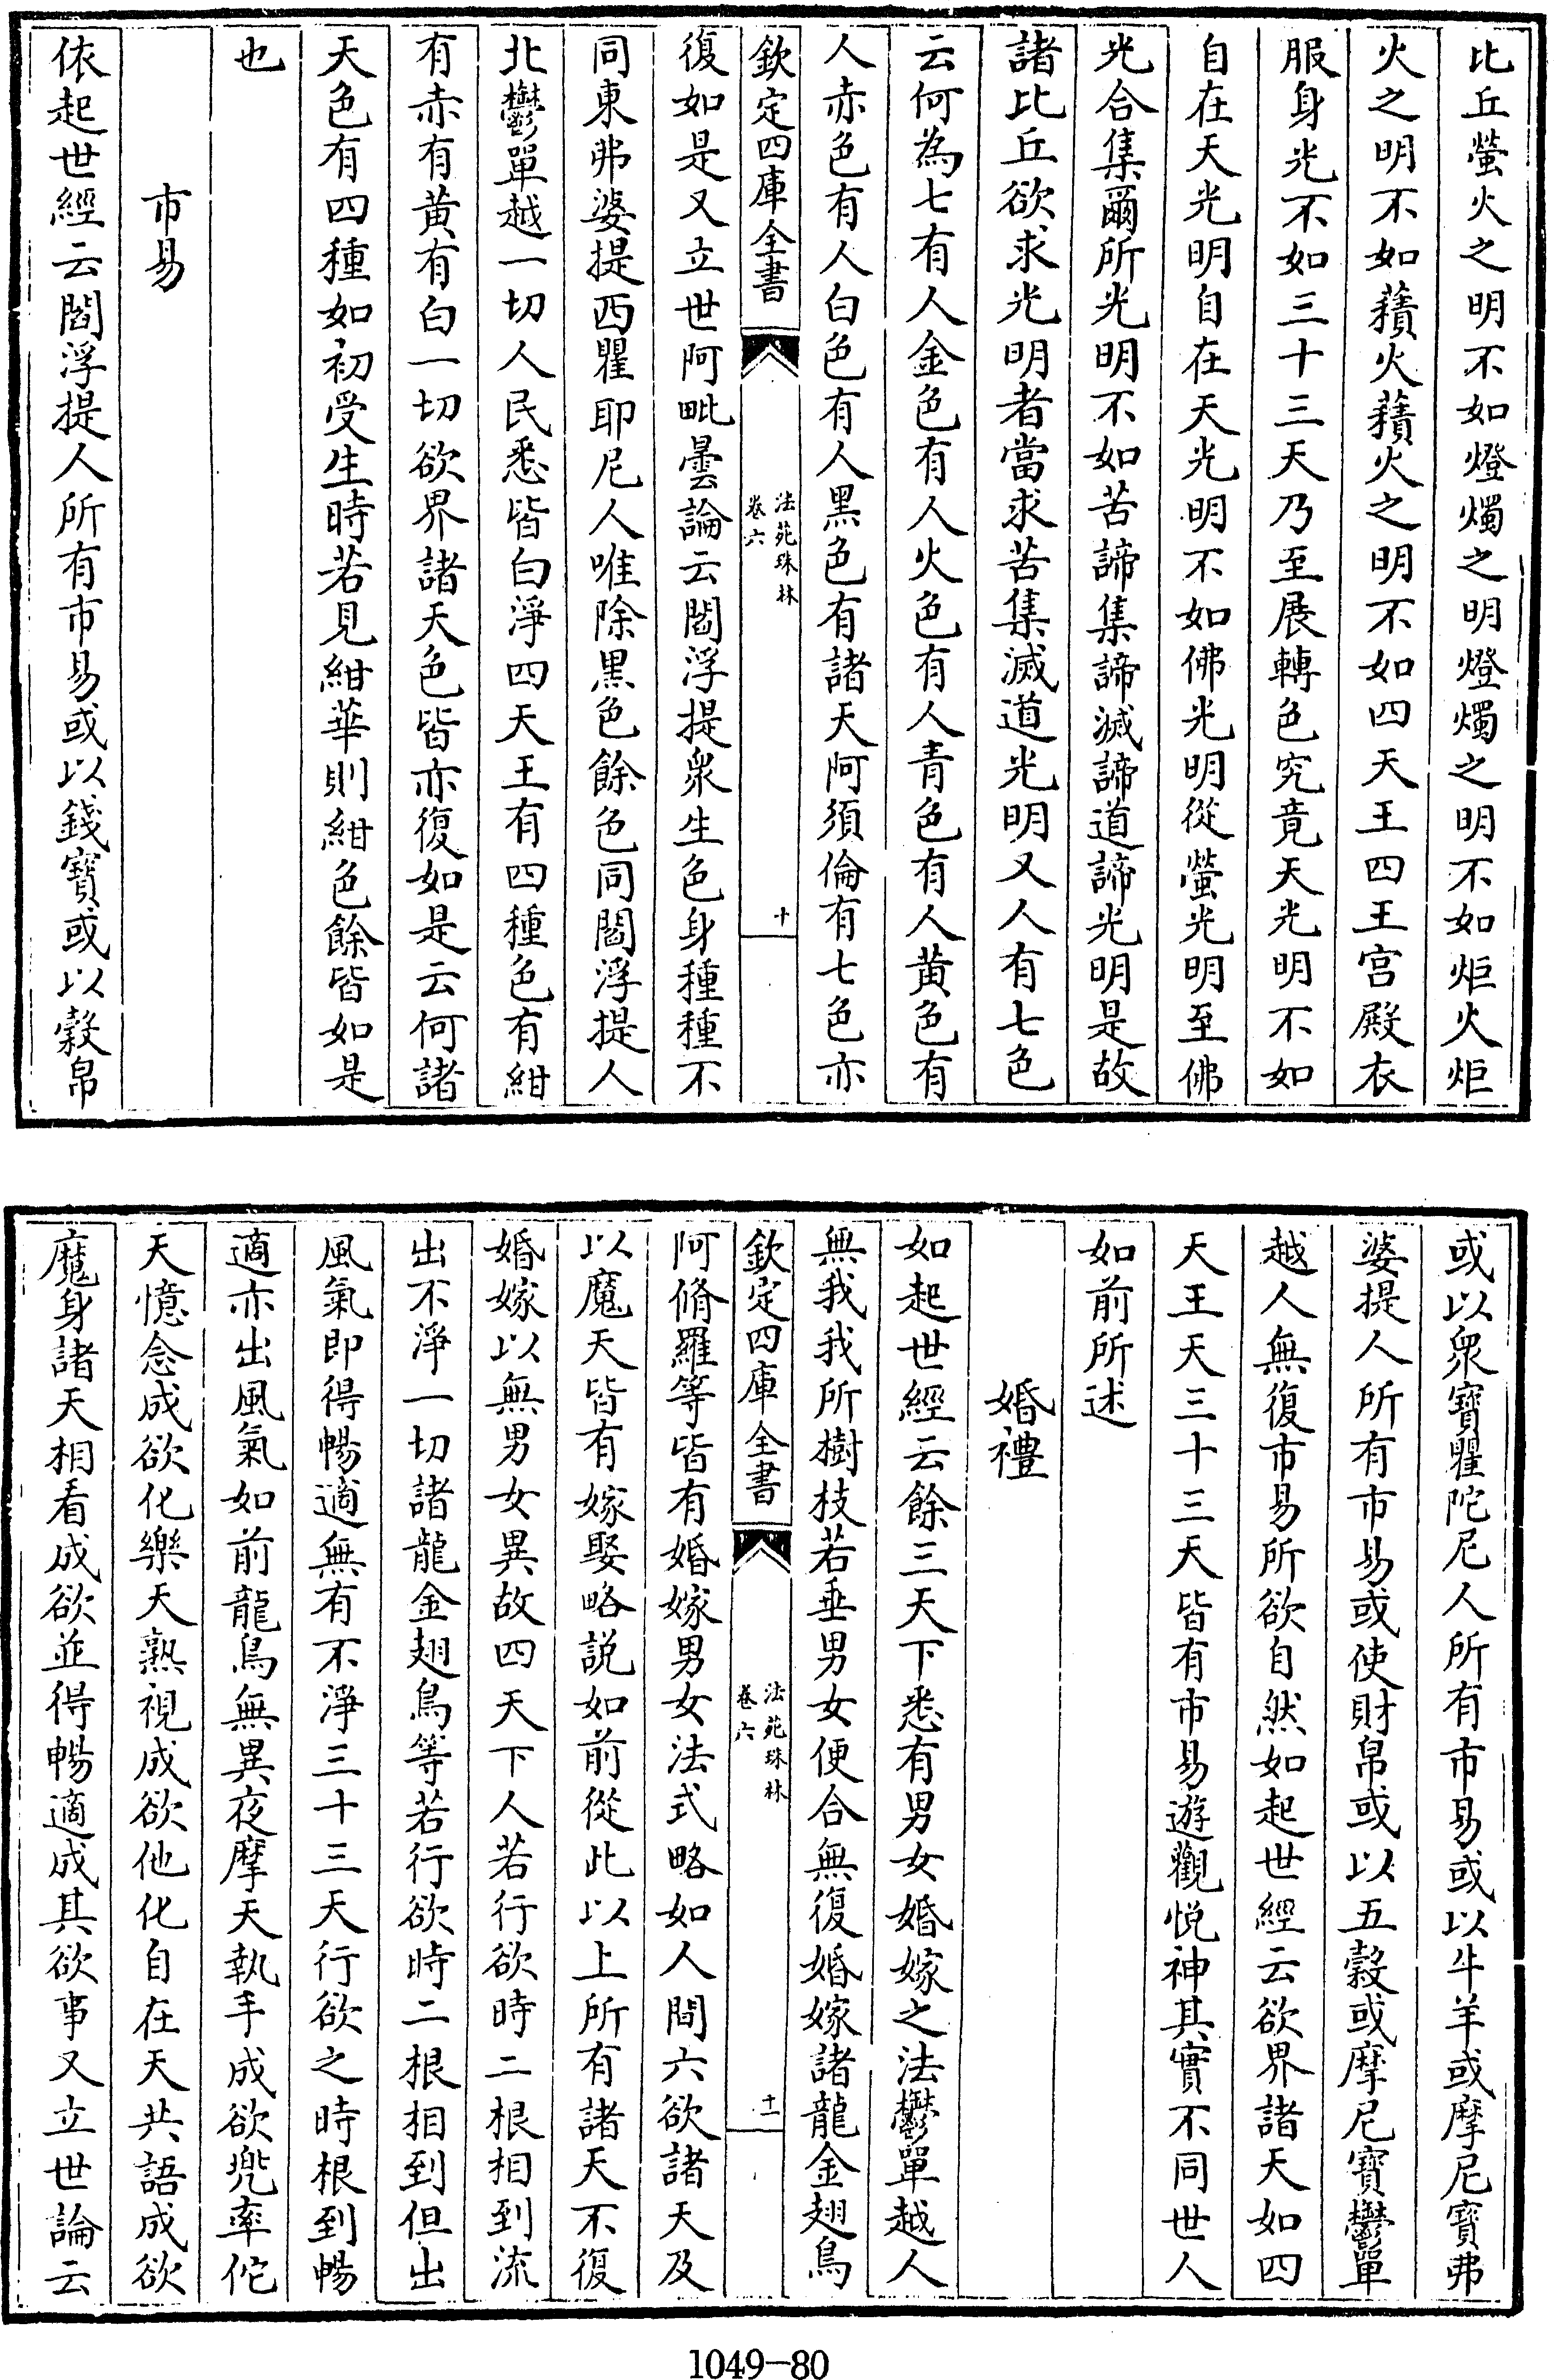 比丘螢火之明不如燈燭之明燈燭之明不如炬火炬
火之明不如𧂐火𧂐火之明不如四天王四王宫殿衣
服身光不如三十三天乃至展轉色究竟天光明不如
自在天光明自在天光明不如佛光明從螢光明至佛
光合集爾所光明不如苦諦集諦滅諦道諦光明是故
諸比丘欲求光明者當求苦集滅道光明又人有七色
云何為七有人金色有人火色有人青色有人黄色有
人赤色有人白色有人黑色有諸天阿須倫有七色亦
欽定四庫全書
法苑珠林
卷六
十
復如是又立世阿毗曇論云閻浮提衆生色身種種不
同東弗婆提西瞿耶尼人唯除黒色餘色同閻浮提人
北鬱單越一切人民悉皆白淨四天王有四種色有紺
有赤有黄有白一切欲界諸天色皆亦復如是云何諸
天色有四種如初受生時若見紺華則紺色餘皆如是
也
市易
依起世經云閻浮提人所有市易或以錢寶或以穀帛
或以衆寶瞿陀尼人所有市易或以牛羊或摩尼寶弗
婆提人所有市易或使財帛或以五穀或摩尼寶鬱單
越人無復市易所欲自然如起世經云欲界諸天如四
天王天三十三天皆有市易遊觀悦神其實不同世人
如前所述
婚禮
如起世經云餘三天下悉有男女婚嫁之法鬱單越人
無我我所樹枝若垂男女便合無復婚嫁諸龍金翅鳥
欽定四庫全書
法苑珠林
卷六
十一
阿脩羅等皆有婚嫁男女法式略如人間六欲諸天及
以魔天皆有嫁娶略説如前從此以上所有諸天不復
婚嫁以無男女異故四天下人若行欲時二根相到流
出不淨一切諸龍金翅鳥等若行欲時二根相到但出
風氣即得暢適無有不淨三十三天行欲之時根到暢
適亦出風氣如前龍鳥無異夜摩天執手成欲兜率佗
天憶念成欲化樂天熟視成欲他化自在天共語成欲
魔身諸天相看成欲並得暢適成其欲事又立世論云
1049-80